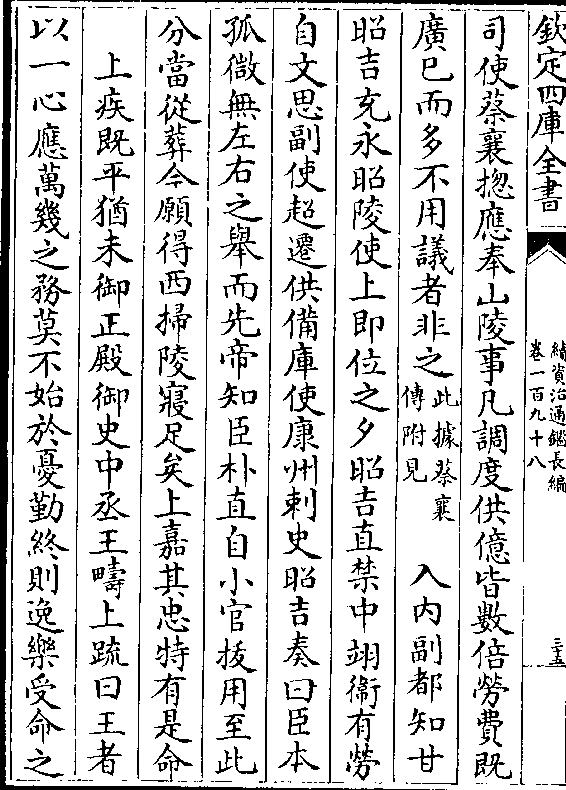 欽定四庫全書
續資治通鑑長編
卷一百九十八
三十五
司使蔡襄揔應奉山陵事凡調度供億皆數倍勞費既
廣已而多不用議者非之此據蔡襄
傳附見
入内副都知甘
昭吉充永昭陵使上即位之夕昭吉直禁中翊衞有勞
自文思副使超遷供備庫使康州刺史昭吉奏曰臣本
孤微無左右之舉而先帝知臣朴直自小官拔用至此
分當從葬今願得西掃陵寢足矣上嘉其忠特有是命
上疾既平猶未御正殿御史中丞王疇上疏曰王者
以一心應萬幾之務莫不始於憂勤終則逸樂受命之